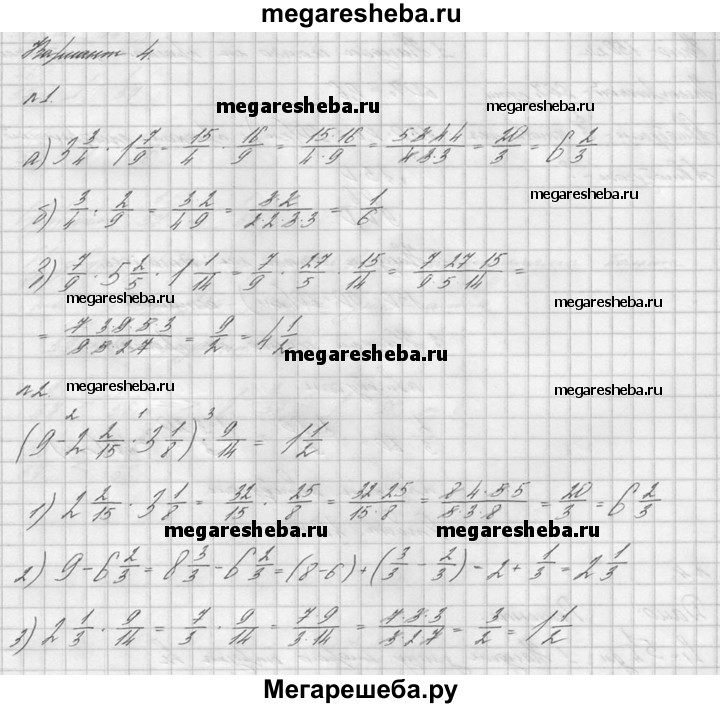 megaresheba.ru
Вариант 4.
№1.
megaresheba.ru megaresheba.ru
а) 3 3/4 · 1 7/9 = 15/4 · 16/9 = 15·16/4·9 = 5·3·4·4/4·3·3 = 20/3 = 6 2/3
megaresheba.ru
б) 3/4 · 2/9 = 3 2/4 9 = 3·2/2·2·3·3 = 1/6
з) 7/9 · 5 2/5 · 1 1/14 = 7/9 · 27/5 · 15/14 = 7 27 15/9 5 14 =
megaresheba.ru megaresheba.ru
= 7·3·9·5·3/9·5·2·7 = 9/2 = 4 1/2
megaresheba.ru
№2. megaresheba.ru megaresheba.ru
2 1 3
(9 - 2 2/15 · 3 1/8) · 9/14 = 1 1/2
1) 2 2/15 · 3 1/8 = 32/15 · 25/8 = 32·25/15·8 = 8·4·5·5/5·3·8 = 20/3 = 6 2/3
megaresheba.ru megaresheba.ru
2) 9 - 6 2/3 = 8 3/3 - 6 2/3 = (8-6) + (3/3 - 2/3) = 2 + 1/3 = 2 1/3
3) 2 1/3 · 9/14 = 7/3 · 9/14 = 7 9/3·14 = 7·3·3/3·2·7 = 3/2 = 1 1/2
Мегарешеба.ру